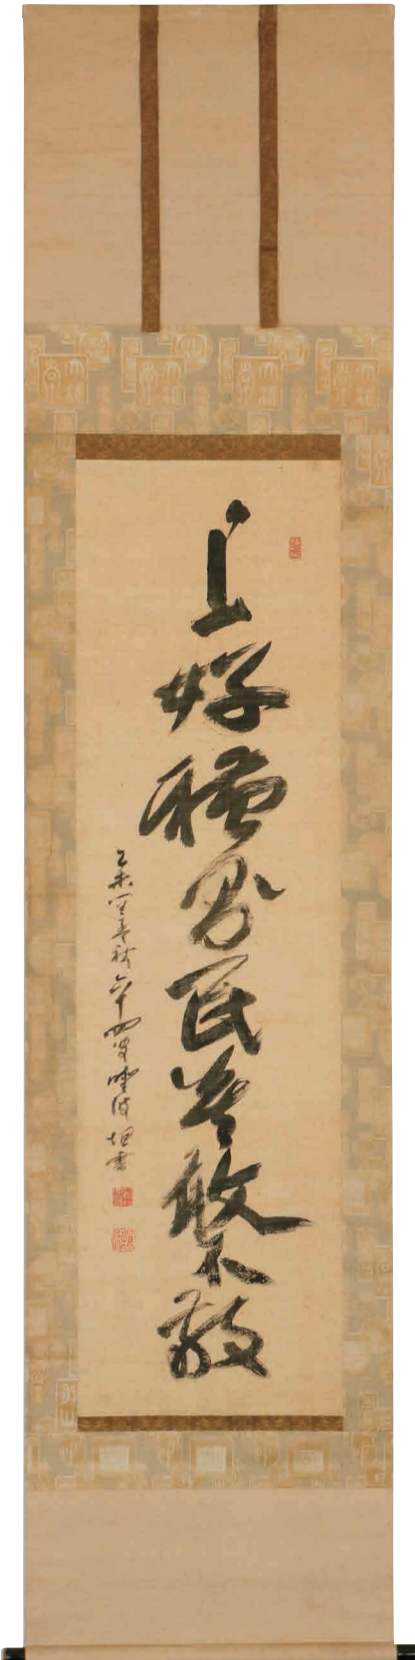 上好禮則民莫敢不敬
乙未 六十四叟 坦書